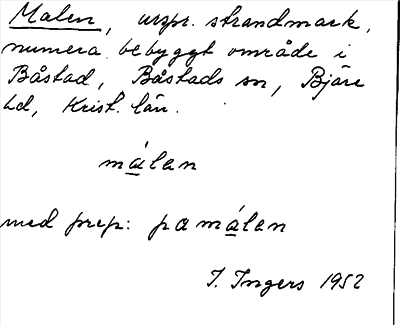 Malen, urspr. strandmark,
numera bebyggt område i
Båstad, Båstads sn, Bjäre
hd, Krist. län.
málen
med prep: pa málen
I. Ingers 1952